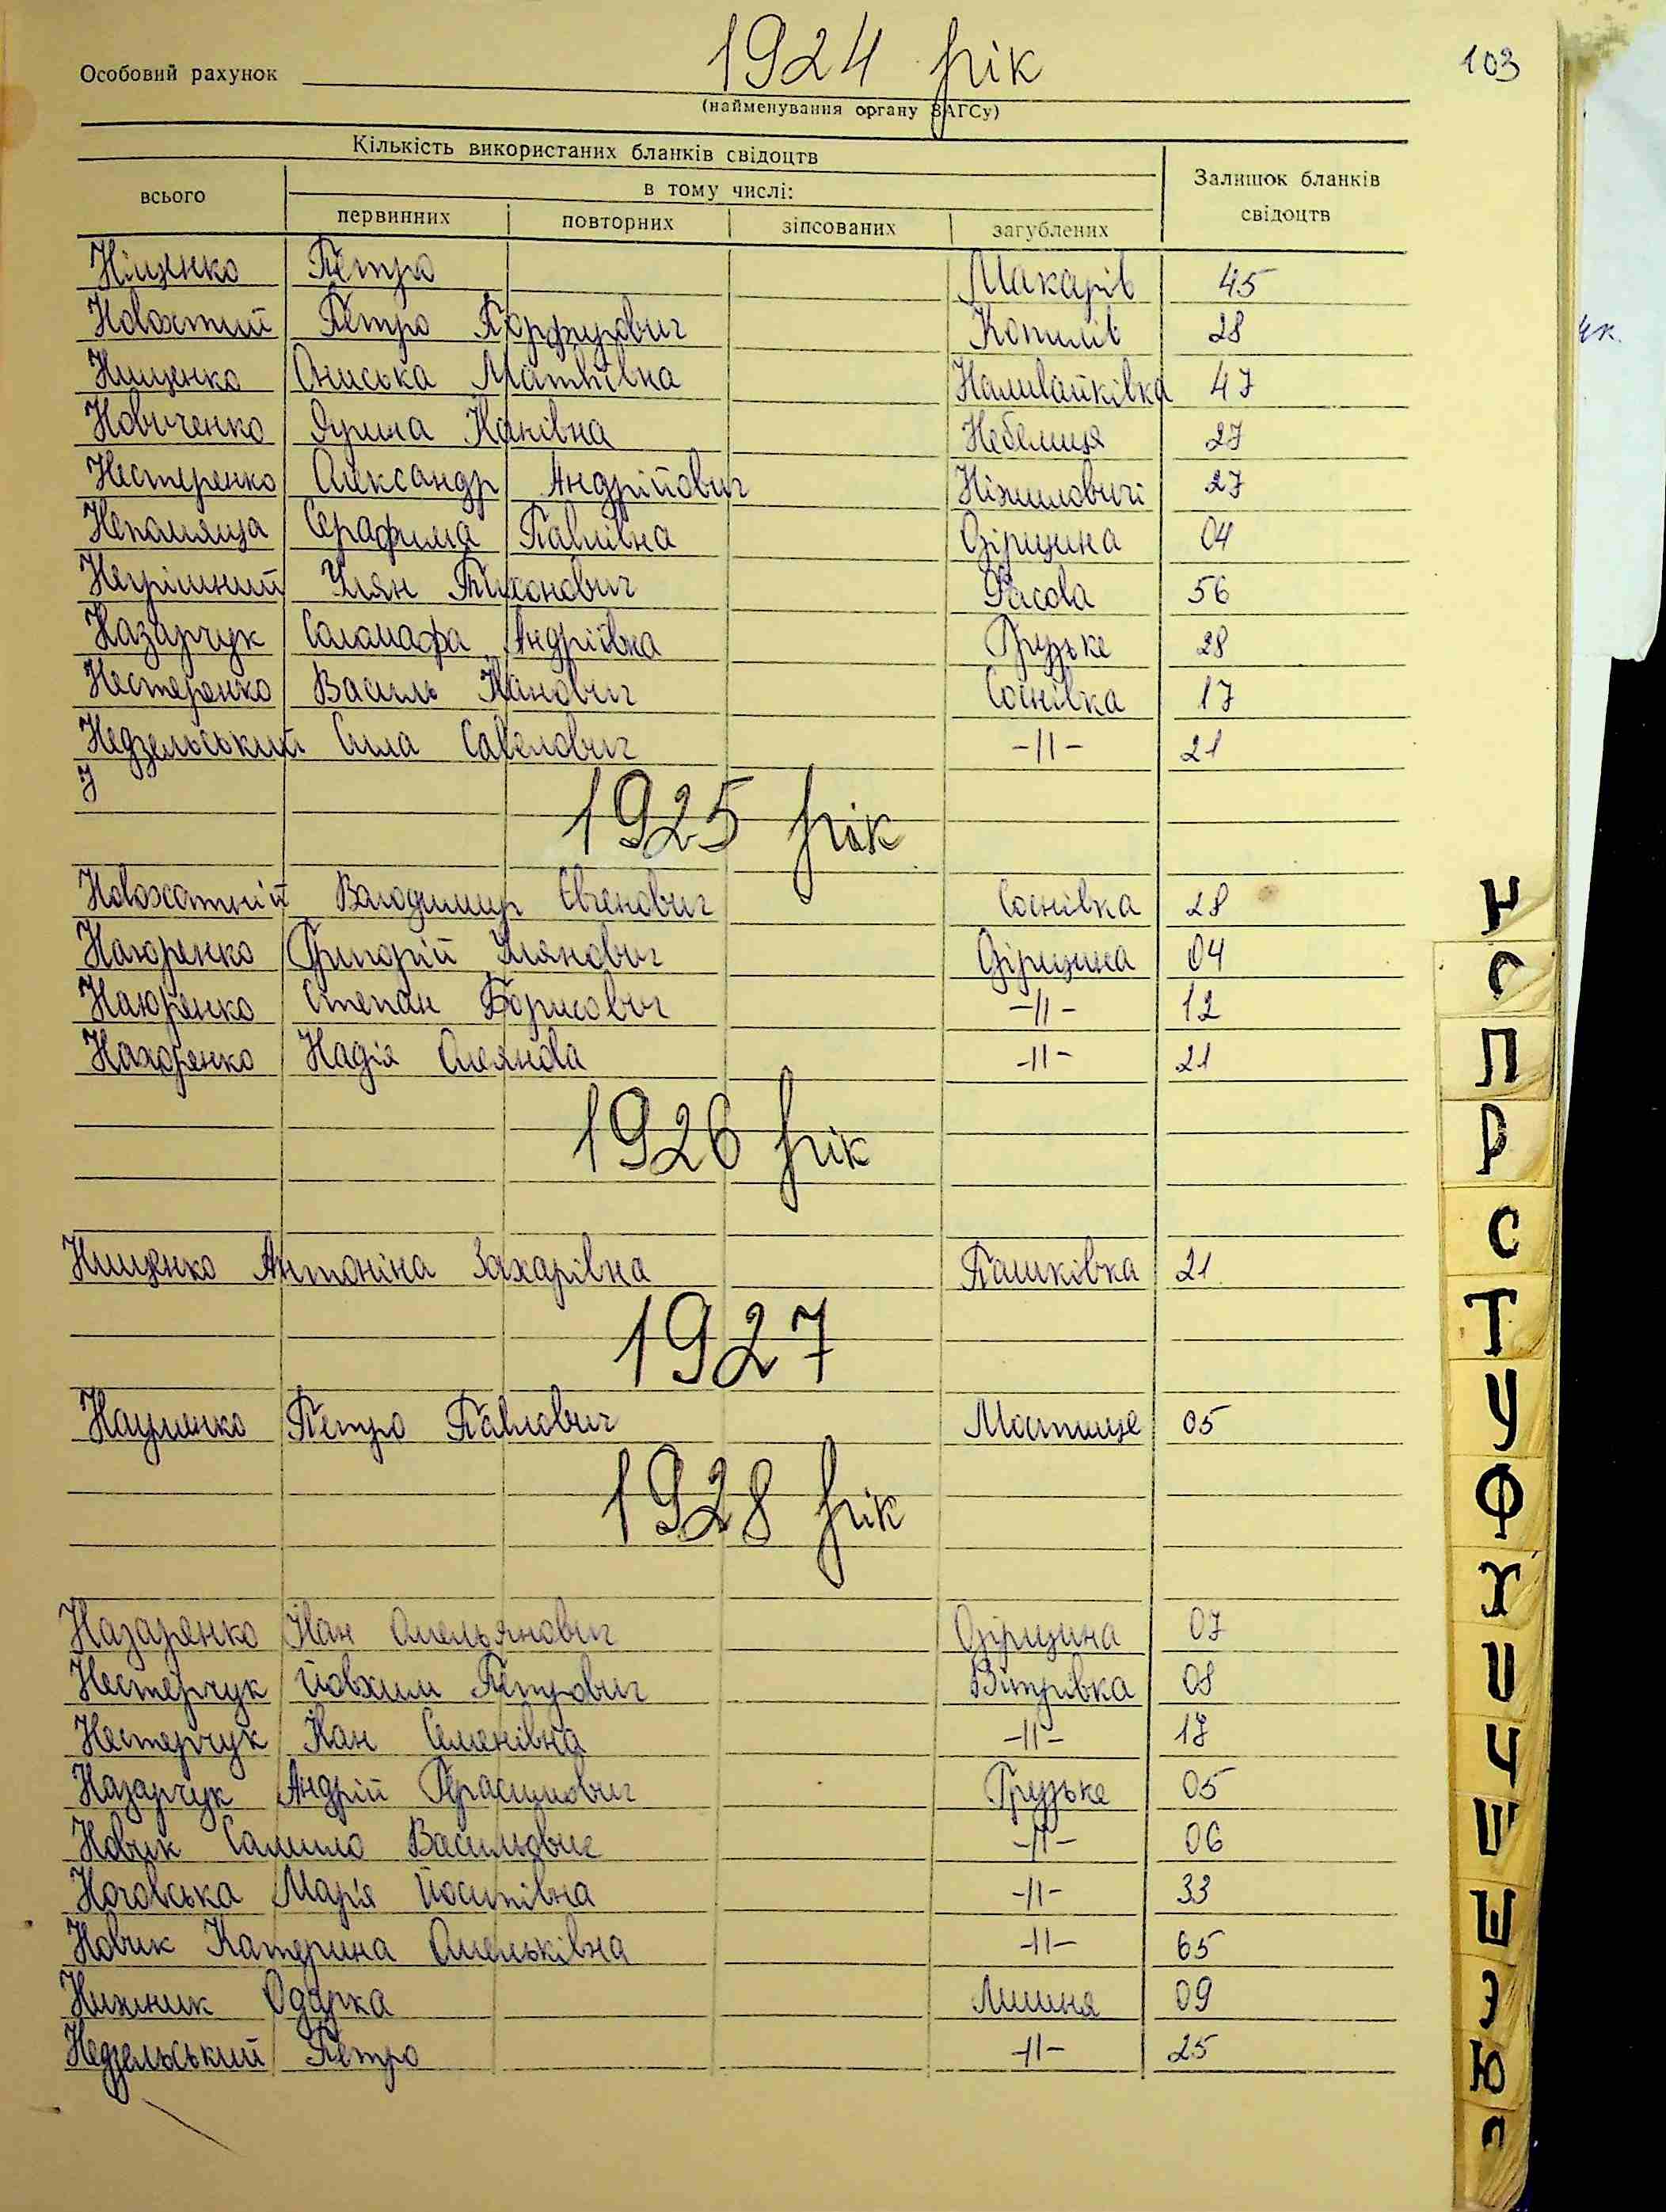 103
1924 рік
Особовий рахунок
(найменування органу ЗАГСу)
Кількість використаних бланків свідоцтв
Залишок бланків свідоцтв
всього
в тому числі:
первинних повторних зіпсованих загублених
Ніщенко Петро Макарів 45
Петро Порфирович Копилів 28
Нищенко Ониська Матвіївна Наливайківка 47
Новиченко Ярина Іванівна Небелиця 27
Нестеренко Олександр Андрійович Ніжиловичі 27
Непомяща Серафима Павлівна Озірщина 04
Негрішний Улян Тихонович Фасова 56
Назарчук Соломафа Андріївна Грузьке 28
Нестеренко Василь Іванович Соснівка 17
Недзельський Сила Савелович -11- 21
1925 рік
Новохатній Володимир Євгенович Соснівка 28
Григорій Улянович Озірщина 04
Степан Борисович -11- 12
Надія -11- 21
1926 рік
Нищенко Антоніна Захарівна Пашківка 21
1927
Науменко Петро Павлович Мостище 05
1928 рік
Назаренко Іван Омельянович Озірщина 07
Нестерчук Йовхим Петрович Вітрівка 08
Нестерчук Іван Семенівна -11- 17
Назарчук Андрій Герасимович Грузьке 05
Новик Самило Васильович -11- 06
Марія Йосипівна -11- 33
Новик Катерина Омельківна -11- 65
Нижник Одарка Лишня 09
Недзельський Петро -11- 25
Н
О
П
Р
С
Т
У
Ф
Х
Ц
Ч
Ш
Щ
Э
Ю